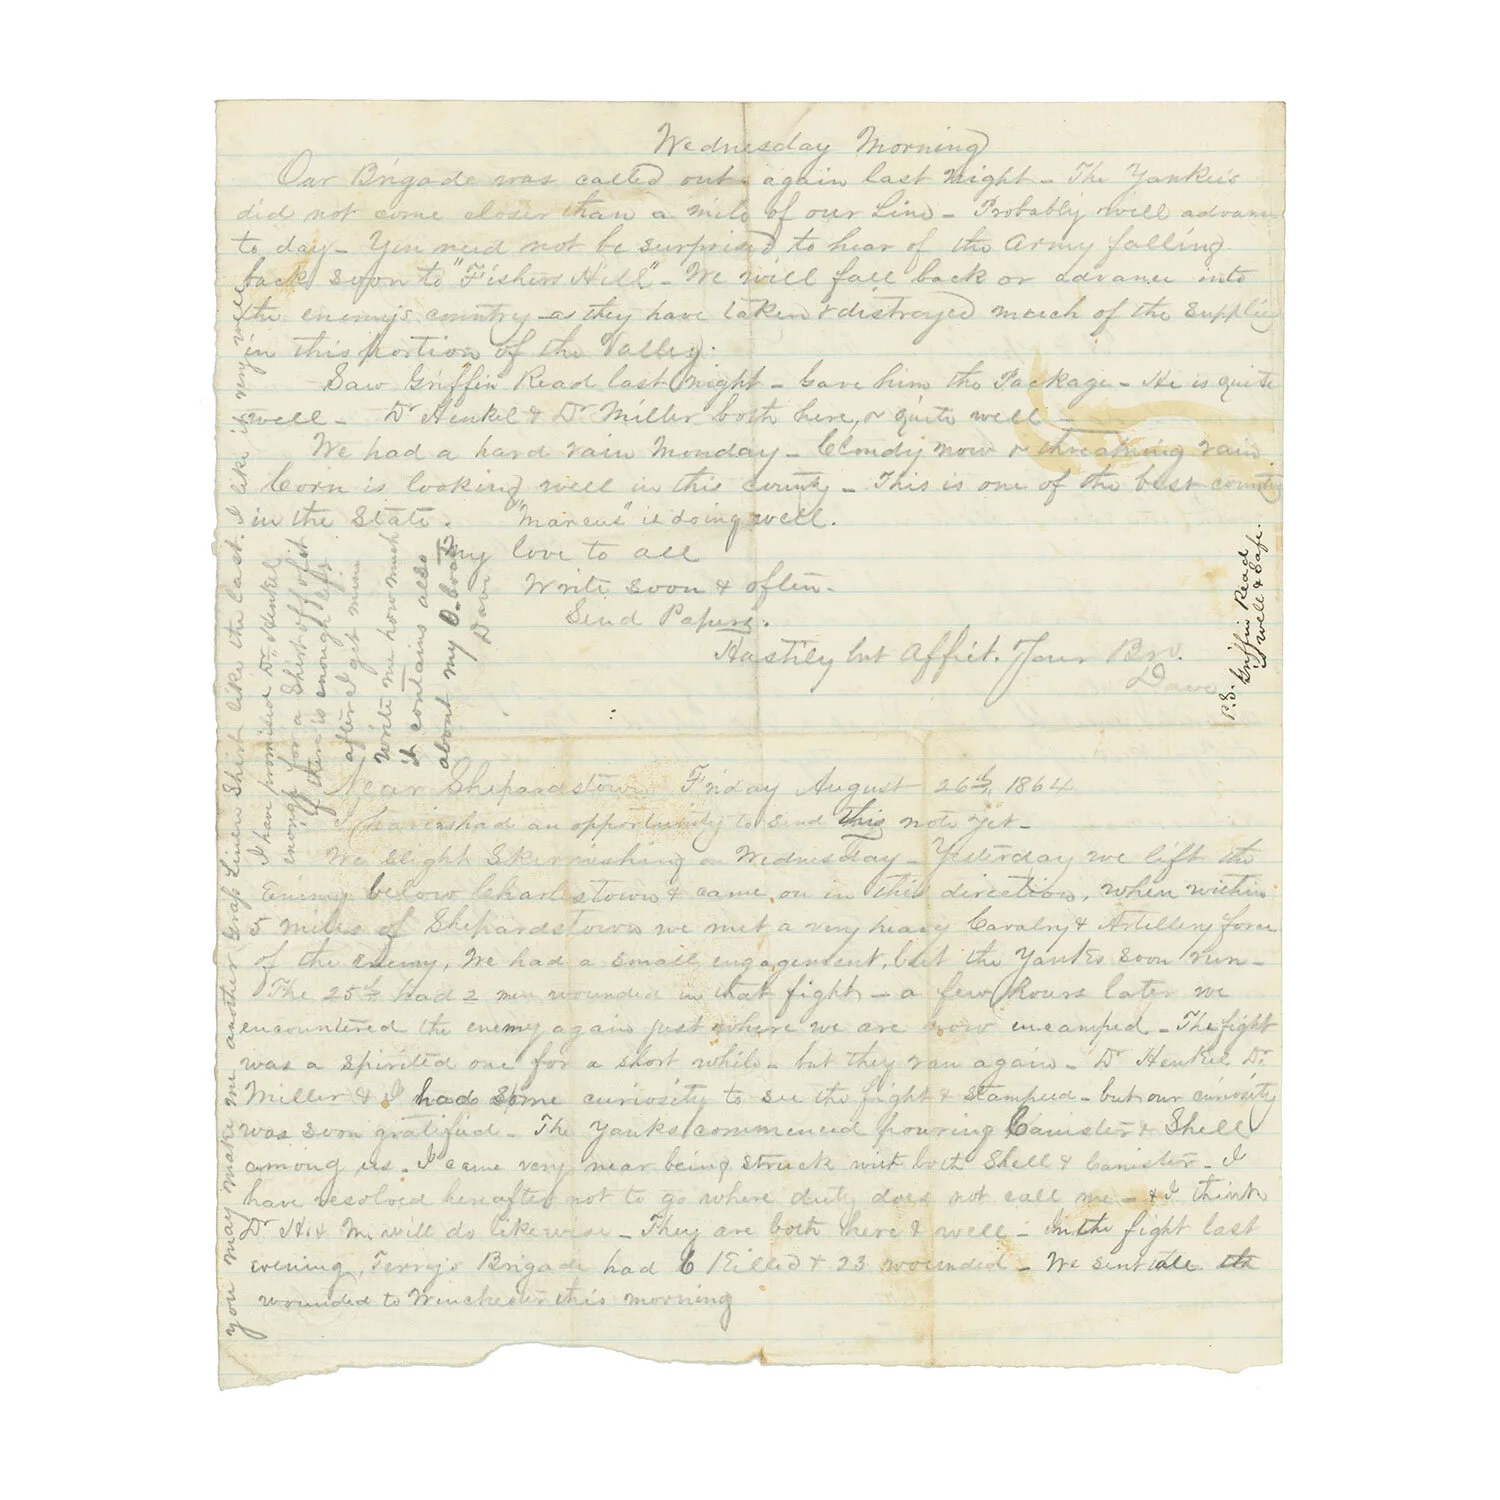 Wednesday Morning
Our Brigade was called out again last night - The Yankee's
did not come closer than a mile of our Line - Probably will advance
to day - You need not be surprised to hear of the Army falling
back soon to "Fishers Hill" - We will fall back or advance into
the enemy's country - as they have taken & distroyed much of the supplies
in this portion of the Valley.
Saw Griffin Read last night - Gave him the Package - He is quite
well - Dr Henkel & Dr Miller both here, & quite well -
We had a hard rain Monday - Cloudy now & threatning rain
Corn is looking well in this county - This is one of the best counties
in the State. "Marcus" is doing well.
My love to all
Write soon & often.
Send Papers.
Hastily but Affect. Your Bro.
Dave
P.S. Griffin Read
is well & safe.
Near Shepardstown Friday August 26th, 1864
I haven had an opportunity to send this note yet -
We slight Skirmishing on Wednesday - Yesterday we left the
Enemy below Charlestown & came on in this direction, when within
5 miles of Shepardstown we met a very heavy Cavalry & Artillery force
of the enemy, We had a small engagement, but the Yankes soon run -
The 25th had 2 men wounded in that fight - a few hours later we
encountered the enemy again just where we are now encamped - The fight
was a spirited one for a short while - but they ran again - Dr Henkel Dr
Miller & I had some curiosity to see the fight & stampeed - but our curiosity
was soon gratified - The Yanks commenced pouring Canister & Shell
among us - I came very near being struck with both Shell & Canister - I
have resolved hereafter not to go where duty does not call me - & I think
Dr H. & M. will do likewise - They are both here & well - In the fight last
evening, Terry's Brigade had 6 Killed & 23 wounded - We sent all the
wounded to Winchester this morning
you may make me another Linen Shirt like the last. I like it very well
I have promised Dr. Henkel
enough for a Shirt of
if there is enough left
after I get mine
Write me how much
it contains also
about my
Dave